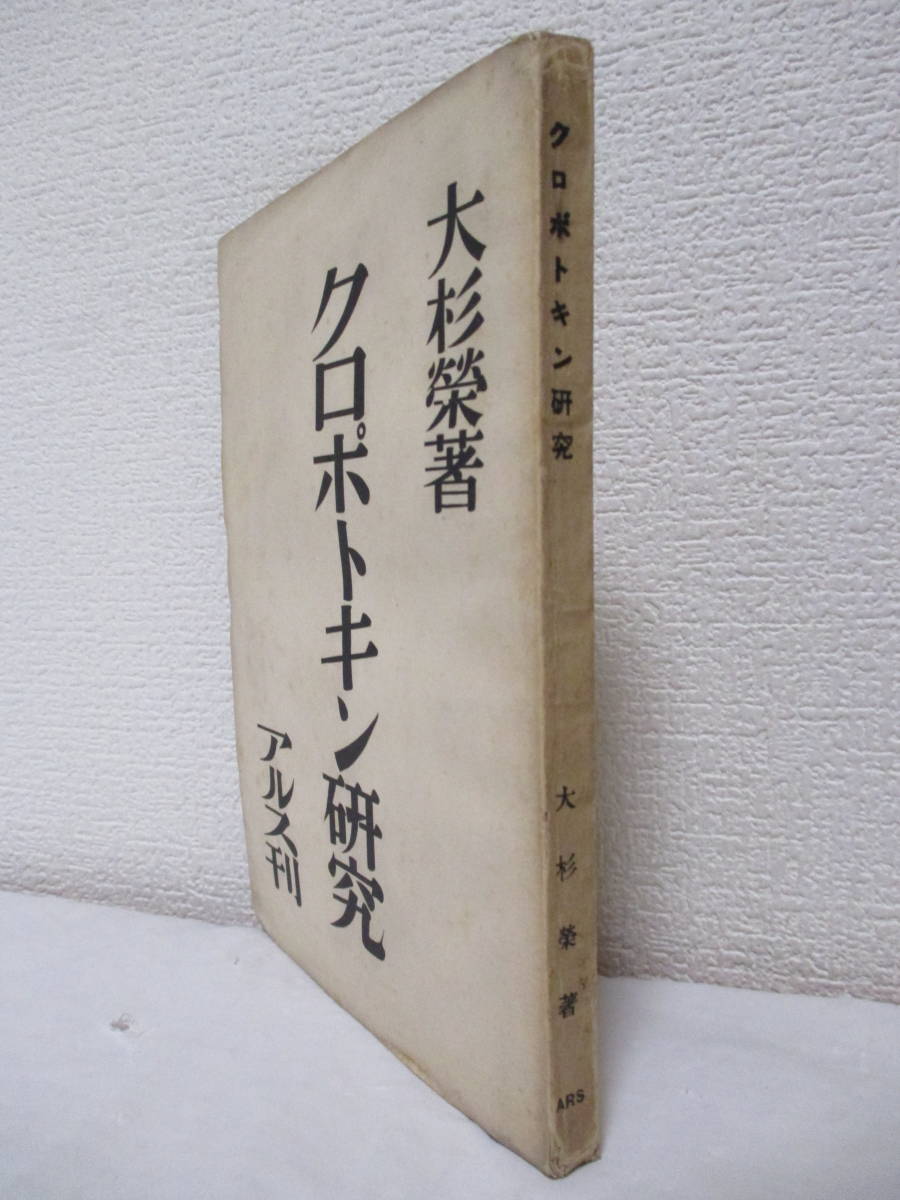 大杉榮著
クロポトキン研究
アルス刊
クロポトキン研究
大杉榮著
ARS